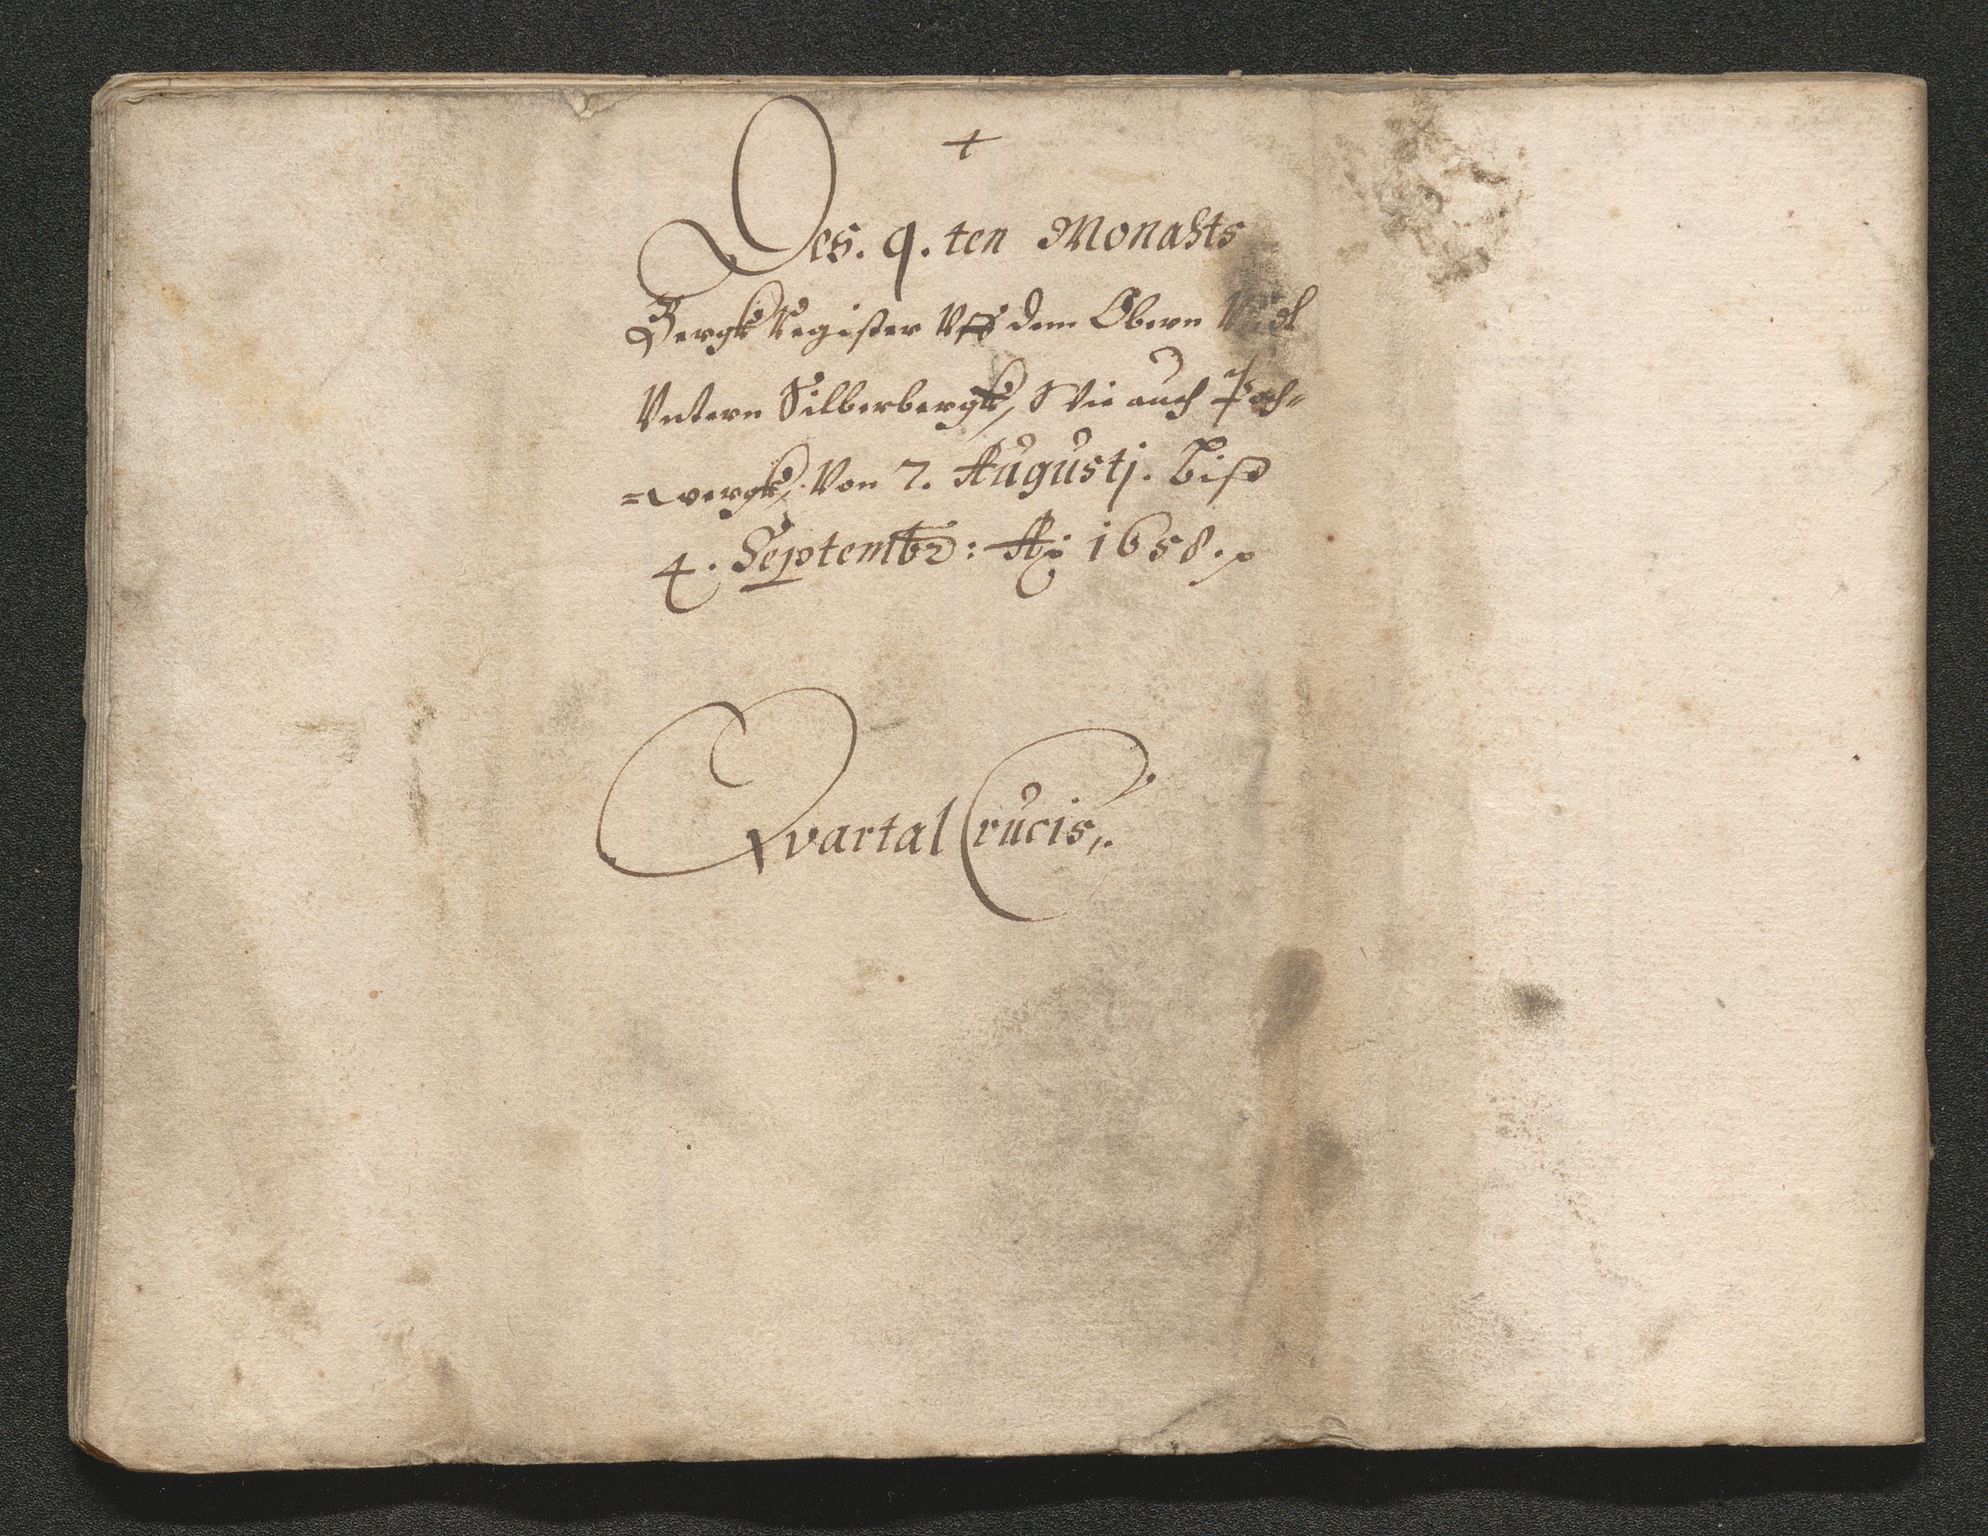 +
Des. 9. ten Monahts
Bergk Register Vff dem Obern Vndt
Vntern Silberbergk, Wie auch Poch=
=wergk, Von 7. Augustj. Biß
4. Septembr: Ao 1658.
Qvartal Crucis,.